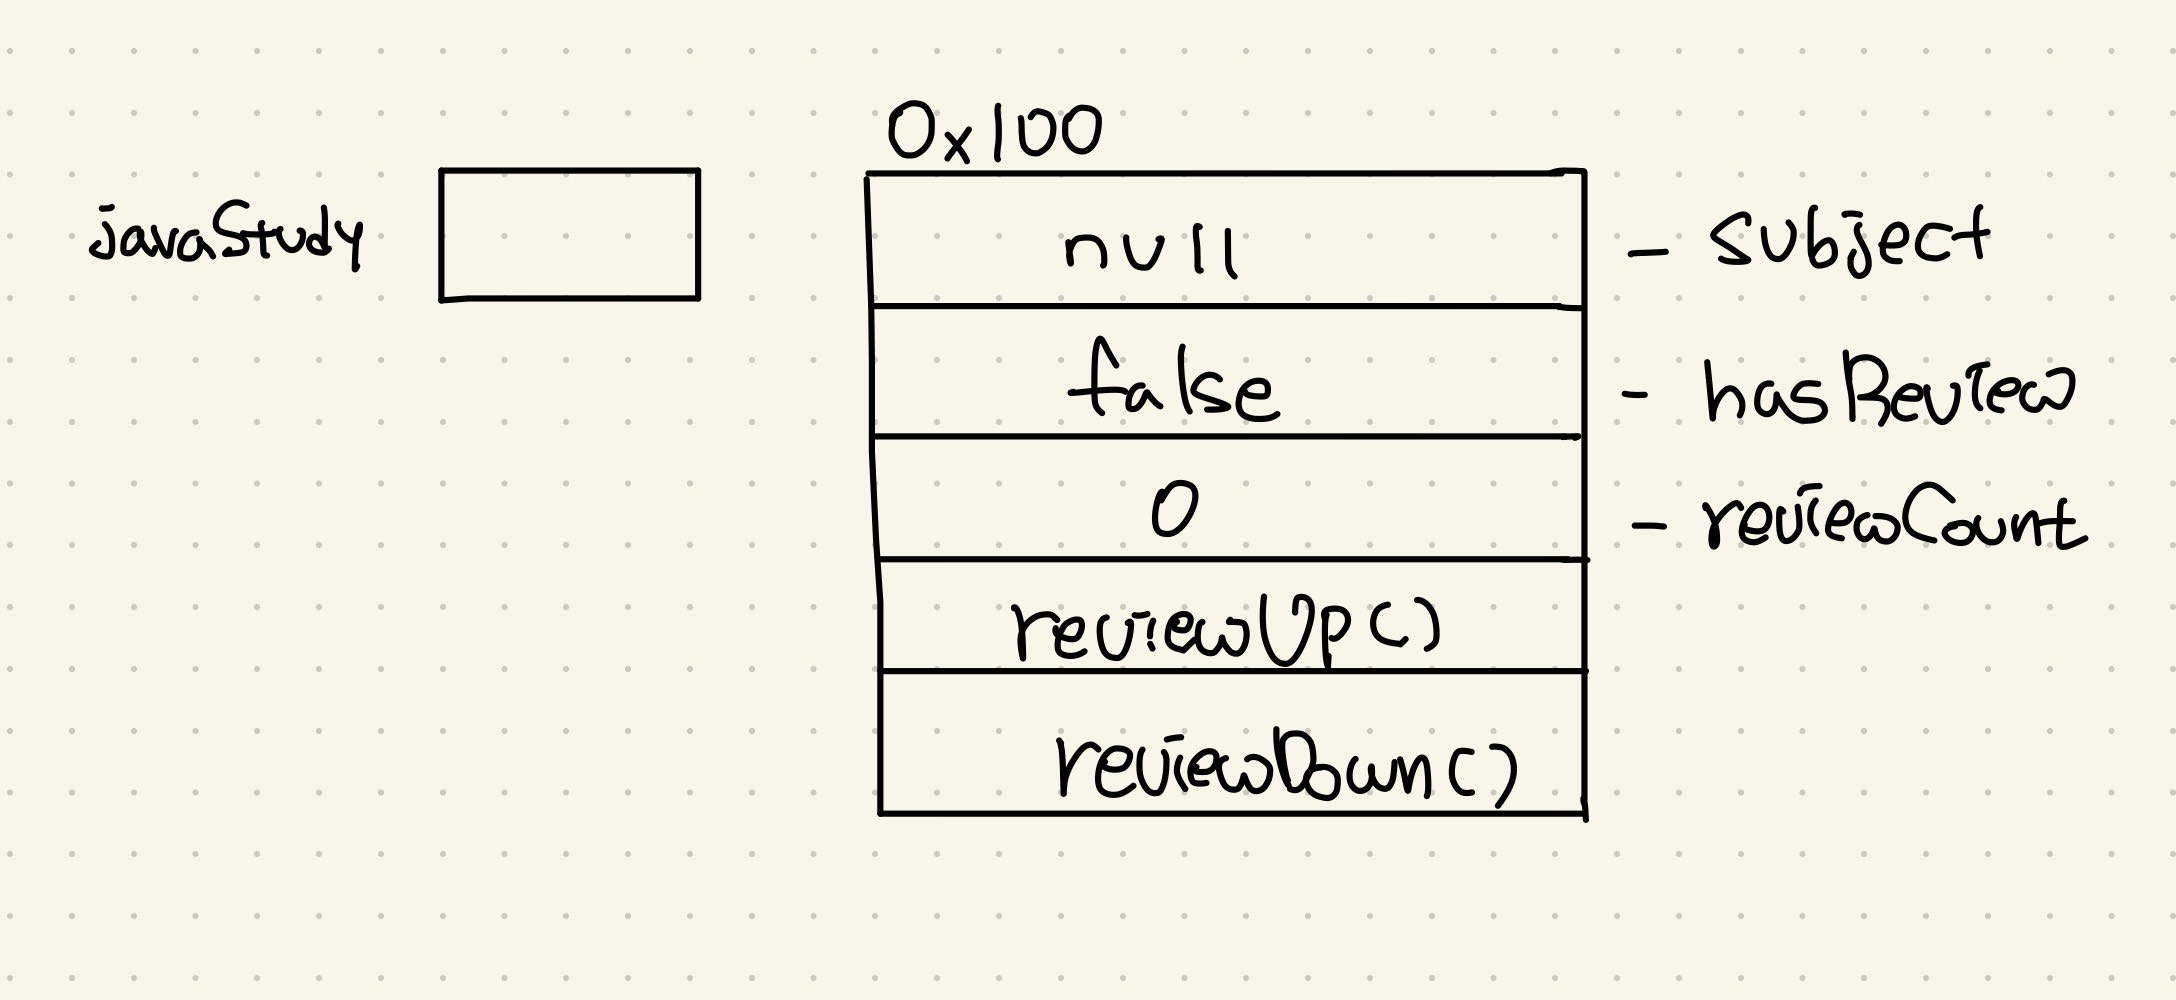 0x100
javaStudy
null - subject
false - hasReview
0 - reviewCount
reviewUp()
reviewDown()